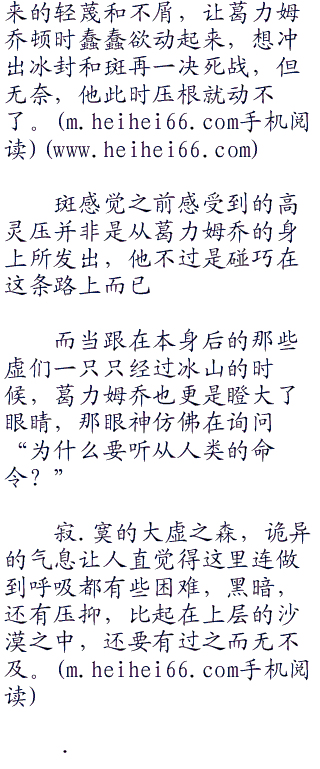 来的轻蔑和不屑，让葛力姆
乔顿时蠢蠢欲动起来，想冲
出冰封和斑再一决死战，但
无奈，他此时压根就动不
了。(m.heihei66.com手机阅
读)(www.heihei66.com)
斑感觉之前感受到的高
灵压并非是从葛力姆乔的身
上所发出，他不过是碰巧在
这条路上而已
而当跟在本身后的那些
虚们一只只经过冰山的时
候，葛力姆乔也更是瞪大了
眼睛，那眼神仿佛在询问
“为什么要听从人类的命
令？”
寂.寞的大虚之森，诡异
的气息让人直觉得这里连做
到呼吸都有些困难，黑暗，
还有压抑，比起在上层的沙
漠之中，还要有过之而无不
及。(m.heihei66.com手机阅
读)
.